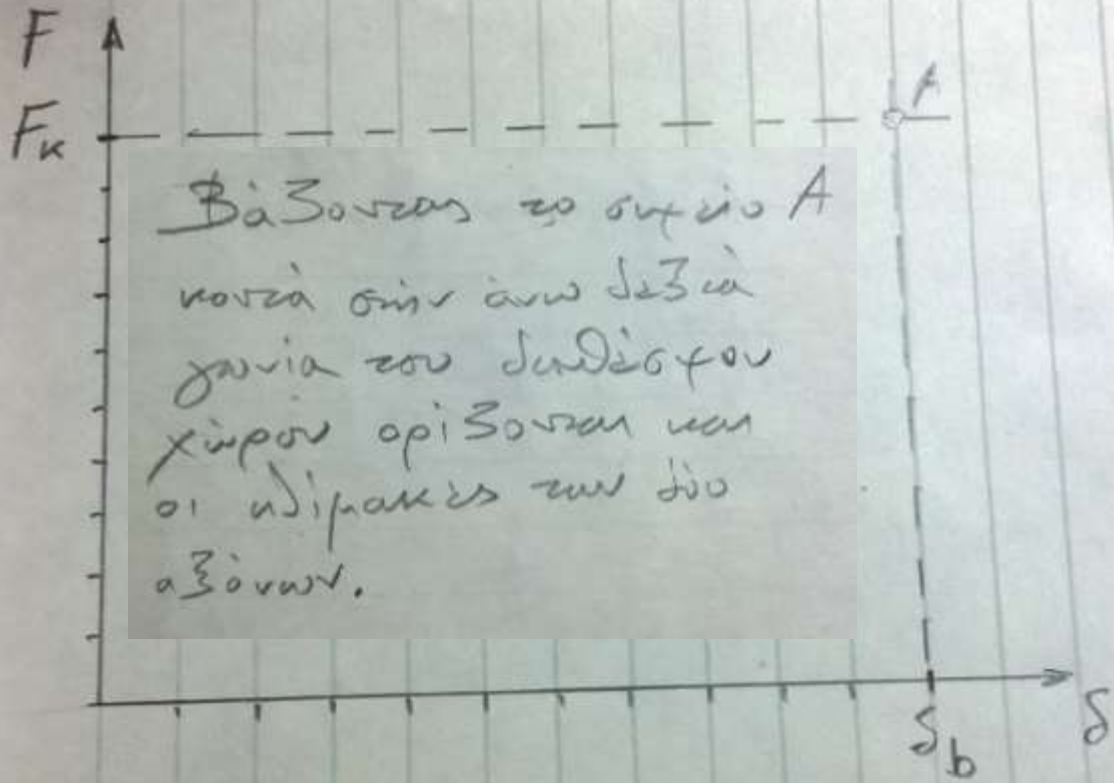 F
Fκ
A
Βάζοντας το σημείο A
κοντά στην άνω δεξιά
γωνία του διαθέσιμου
χώρου ορίζονται και
οι κλίμακες των δύο
αξόνων.
δb
δ